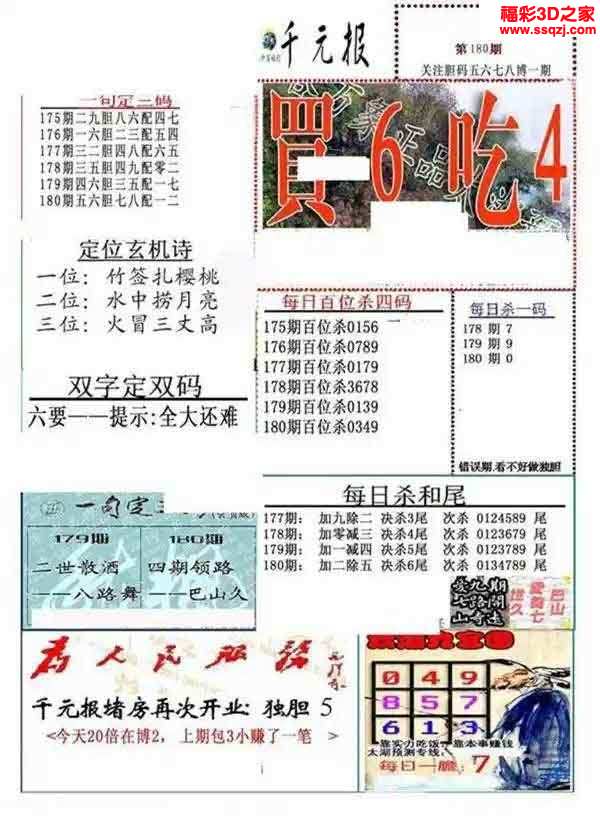 福彩3D之家
www.ssqzj.com
千元报
第180期
关注胆码五六七八博一期
一句定三码
175期二九胆八六配四七
176期一六胆二三配五四
177期三二胆四八配六五
178期三五胆四九配零二
179期四六胆三五配一七
180期五六胆七八配一二
買6吃4
定位玄机诗
一位：竹签扎樱桃
二位：水中捞月亮
三位：火冒三丈高
每日百位杀四码
175期百位杀0156
176期百位杀0789
177期百位杀0179
178期百位杀3678
179期百位杀0139
180期百位杀0349
每日杀一码
178期 7
179期 9
180期 0
错误期.看不好做独胆
双字定双码
六要——提示:全大还难
每日杀和尾
177期: 加九除二 决杀3尾 次杀 0124589 尾
178期: 加零减三 决杀4尾 次杀 0123679 尾
179期: 加一减四 决杀5尾 次杀 0123789 尾
180期: 加二除五 决杀6尾 次杀 0134789 尾
一句定三
179期
二世散酒
——八路舞
180期
四期领路
——巴山久
为人民服务
千元报堵房再次开业: 独胆 5
<今天20倍在博2，上期包3小赚了一笔
049
857
613
靠实力吃饭，靠本事赚钱
太湖预测专线:
每日一胆: 7